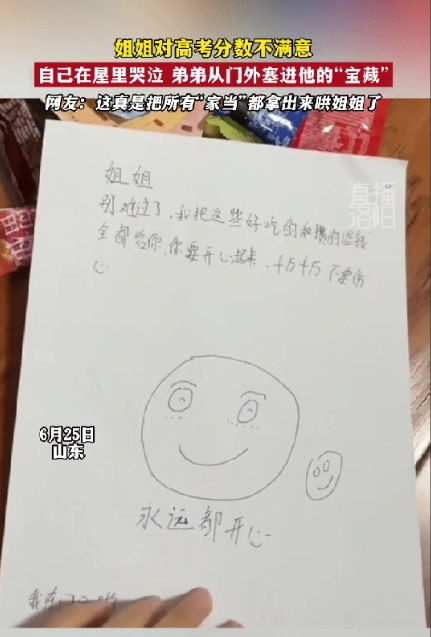 姐姐对高考分数不满意
自己在屋里哭泣 弟弟从门外塞进他的“宝藏”
网友：这真是把所有“家当”都拿出来哄姐姐了
直播
洛阳
姐姐
别难过了，我把这些好吃的和攒的些钱
全部给你，你要开心起来，★ 不要伤
心
6月25日
山东
永远都开心